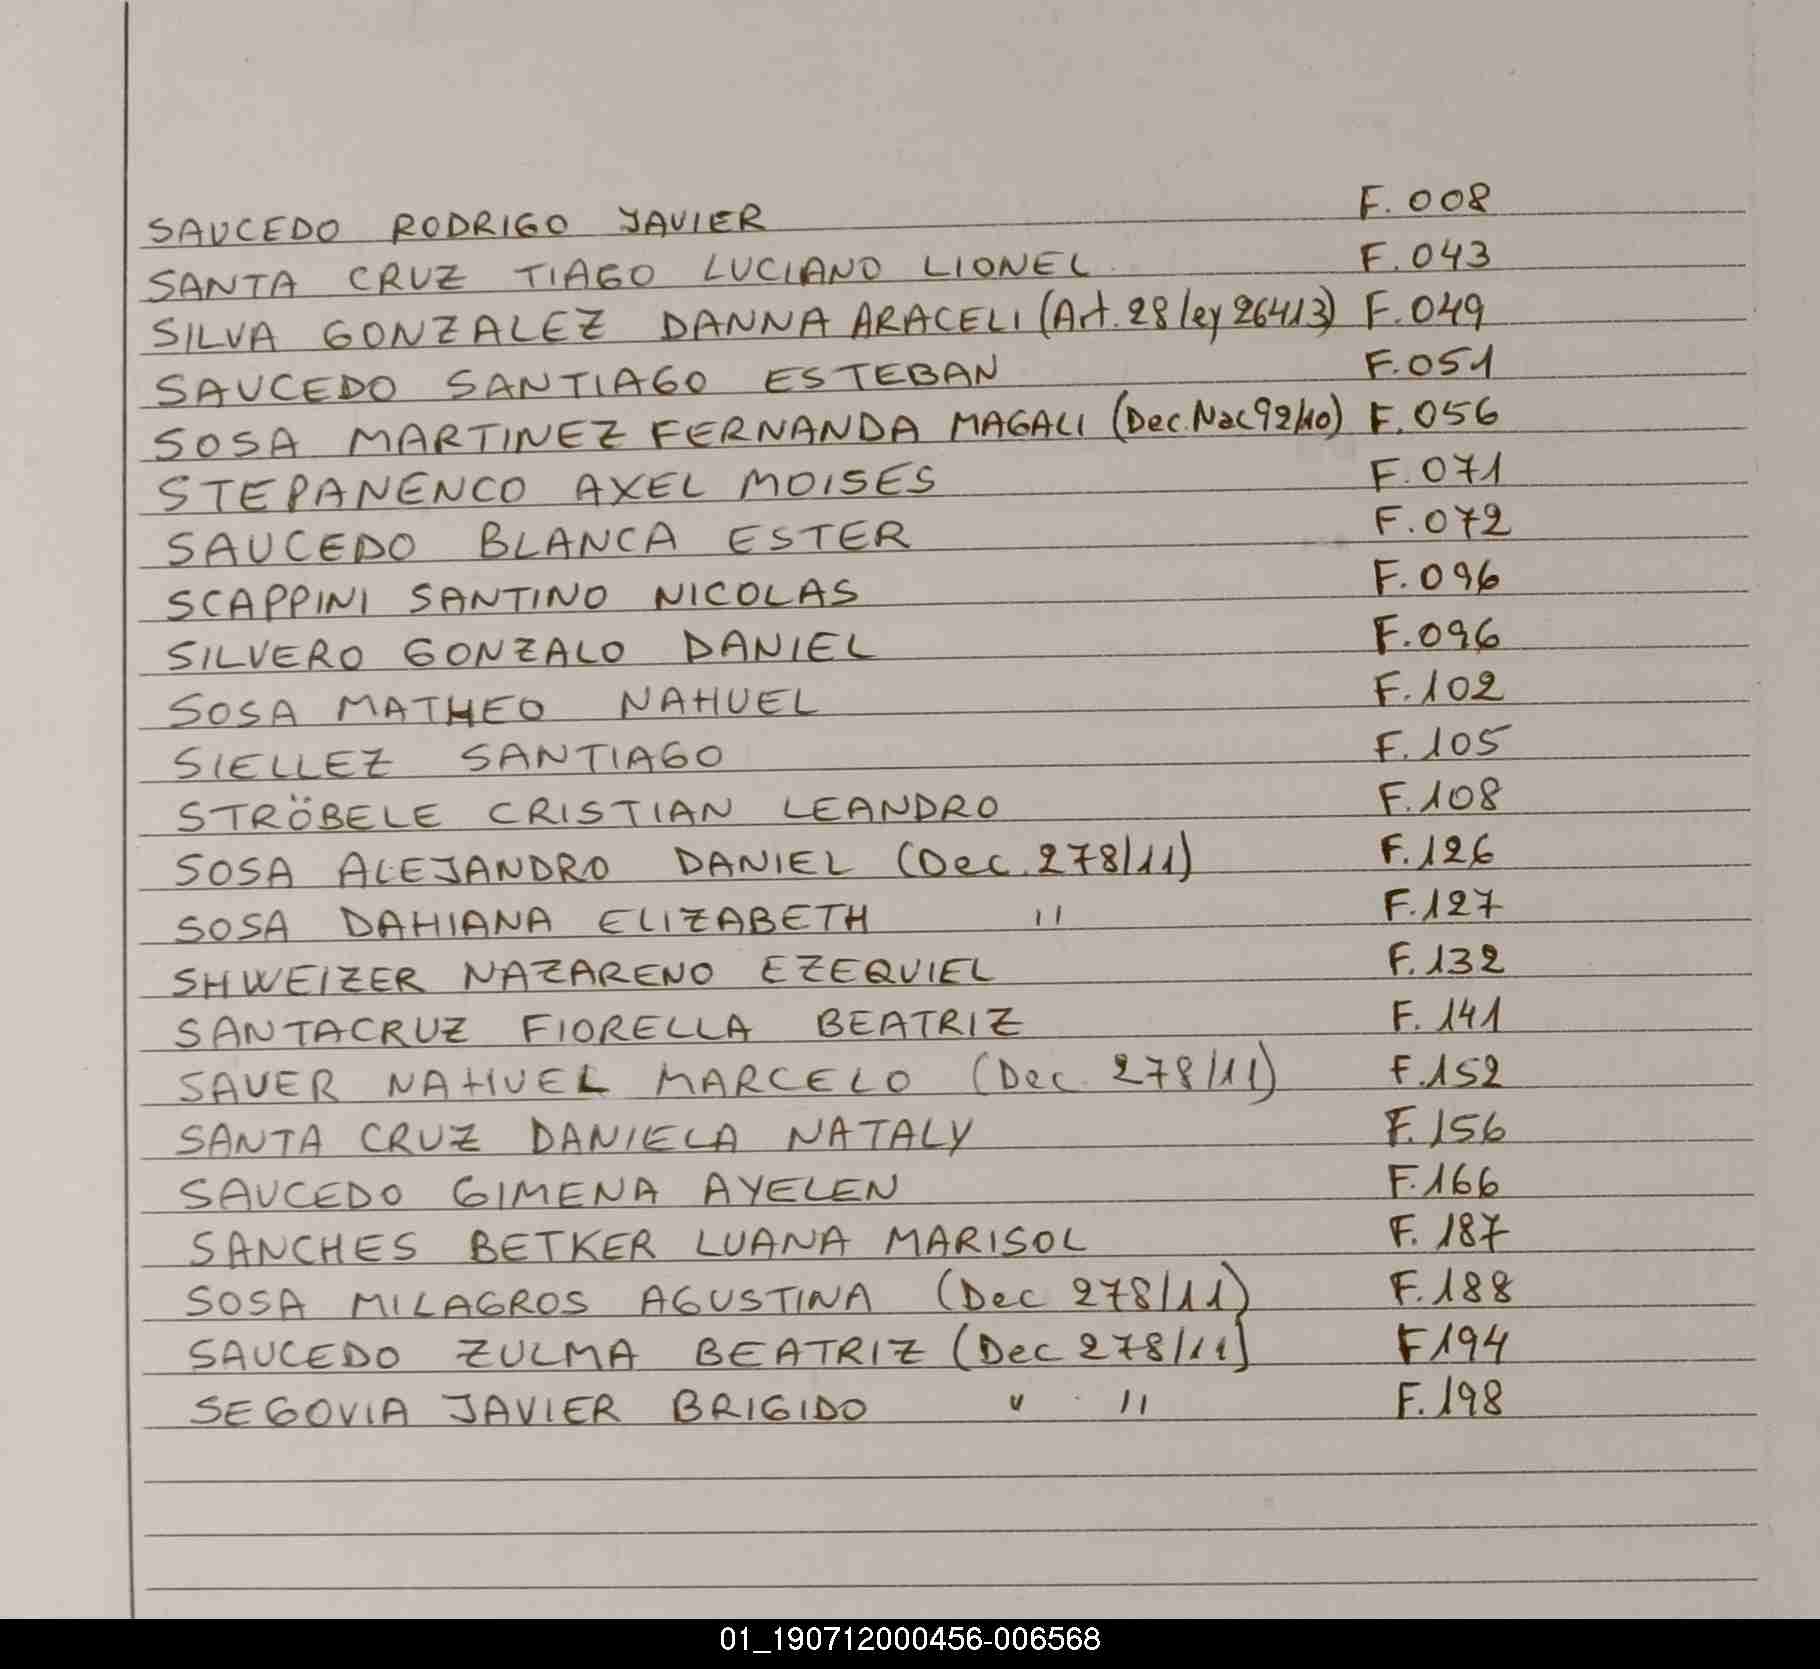 SAUCEDO RODRIGO JAVIER F. 008
SANTA CRUZ TIAGO LUCIANO LIONEL F. 043
SILVA GONZALEZ DANNA ARACELI (Art. 28 ley 26413) F. 049
SAUCEDO SANTIAGO ESTEBAN F. 051
SOSA MARTINEZ FERNANDA MAGALI (Dec. Nac 92/10) F. 056
STEPANENCO AXEL MOISES F. 071
SAUCEDO BLANCA ESTER F. 072
SCAPPINI SANTINO NICOLAS F. 096
SILVERO GONZALO DANIEL F. 096
SOSA MATHEO NAHUEL F. 102
SIELLEZ SANTIAGO F. 105
STRÖBELE CRISTIAN LEANDRO F. 108
SOSA ALEJANDRO DANIEL (Dec. 278/11) F. 126
SOSA DAHIANA ELIZABETH " F. 127
SHWEIZER NAZARENO EZEQUIEL F. 132
SANTACRUZ FIORELLA BEATRIZ F. 141
SAUER NAHUEL MARCELO (Dec. 278/11) F. 152
SANTA CRUZ DANIELA NATALY F. 156
SAUCEDO GIMENA AYELEN F. 166
SANCHES BETKER LUANA MARISOL F. 187
SOSA MILAGROS AGUSTINA (Dec 278/11) F. 188
SAUCEDO ZULMA BEATRIZ (Dec 278/11) F 194
SEGOVIA JAVIER BRIGIDO " " F. 198
01_190712000456-006568